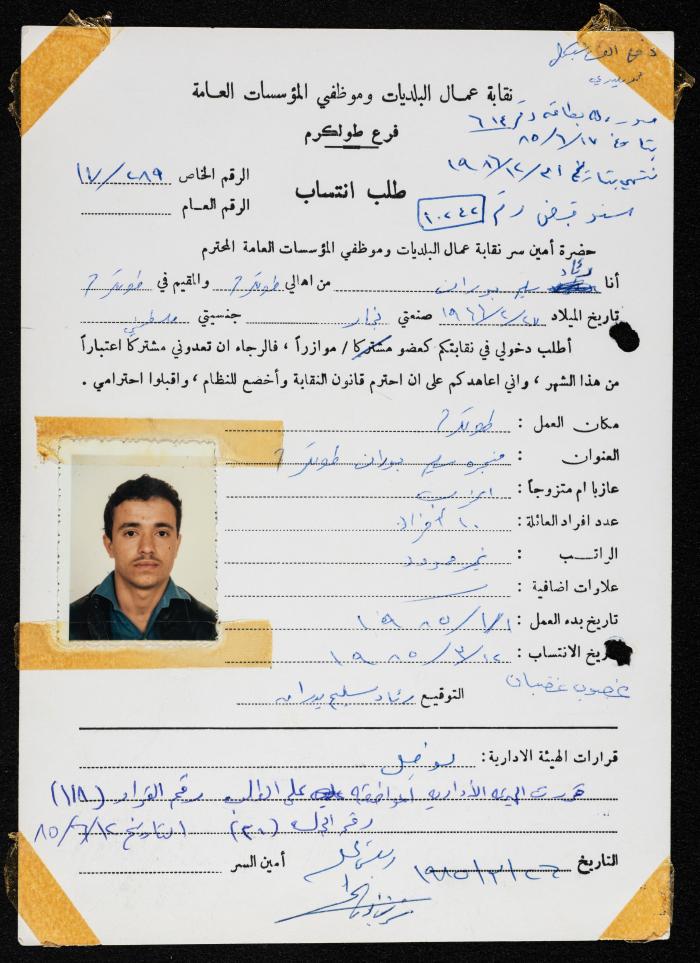 دفع ألف شيكل
نقابة عمال البلديات وموظفي المؤسسات العامة
صورة بطاقة رقم ٦١٤
فرع طولكرم
بتاريخ ٨٥/٦/١٧
تنتهي بتاريخ ١٩٨٦/١٢/٣١
الرقم الخاص ١٧/٢٨٩
طلب انتساب
سند قبض رقم ١٠٢٤٢
الرقم العام
حضرة أمين سر نقابة عمال البلديات وموظفي المؤسسات العامة المحترم
أنا رئاد سليم بدران من اهالي طولكرم والمقيم في طولكرم
تاريخ الميلاد ١٩٦٦/٢/٢٧ صنعتي نجار جنسيتي فلسطيني
أطلب دخولي في نقابتكم كعضو مشتركا / موازراً ، فالرجاء ان تعدوني مشتركاً اعتباراً
من هذا الشهر ، واني اعاهدكم على ان احترم قانون النقابة وأخضع للنظام ، واقبلوا احترامي .
مكان العمل : طولكرم
العنوان : منجرة سليم بدران طولكرم
عازبا ام متزوجاً : اعزب
عدد افراد العائلة : ١٠ أفراد
الراتب : غير محدود
علاوات اضافية :
تاريخ بدء العمل : ١٩٨٥/١/١
تاريخ الانتساب : ١٩٨٥/٣/١٢
غصوب غضبان
التوقيع رئاد سليم بدران
قرارات الهيئة الادارية :
قررت الهيئة الأدارية الموافقة على الطلب رقم القرار (١/٨)
رقم الجلسة التاريخ ٨٥/٦/١٢
التاريخ ١٩٨٥/٣/٢٦ أمين السر